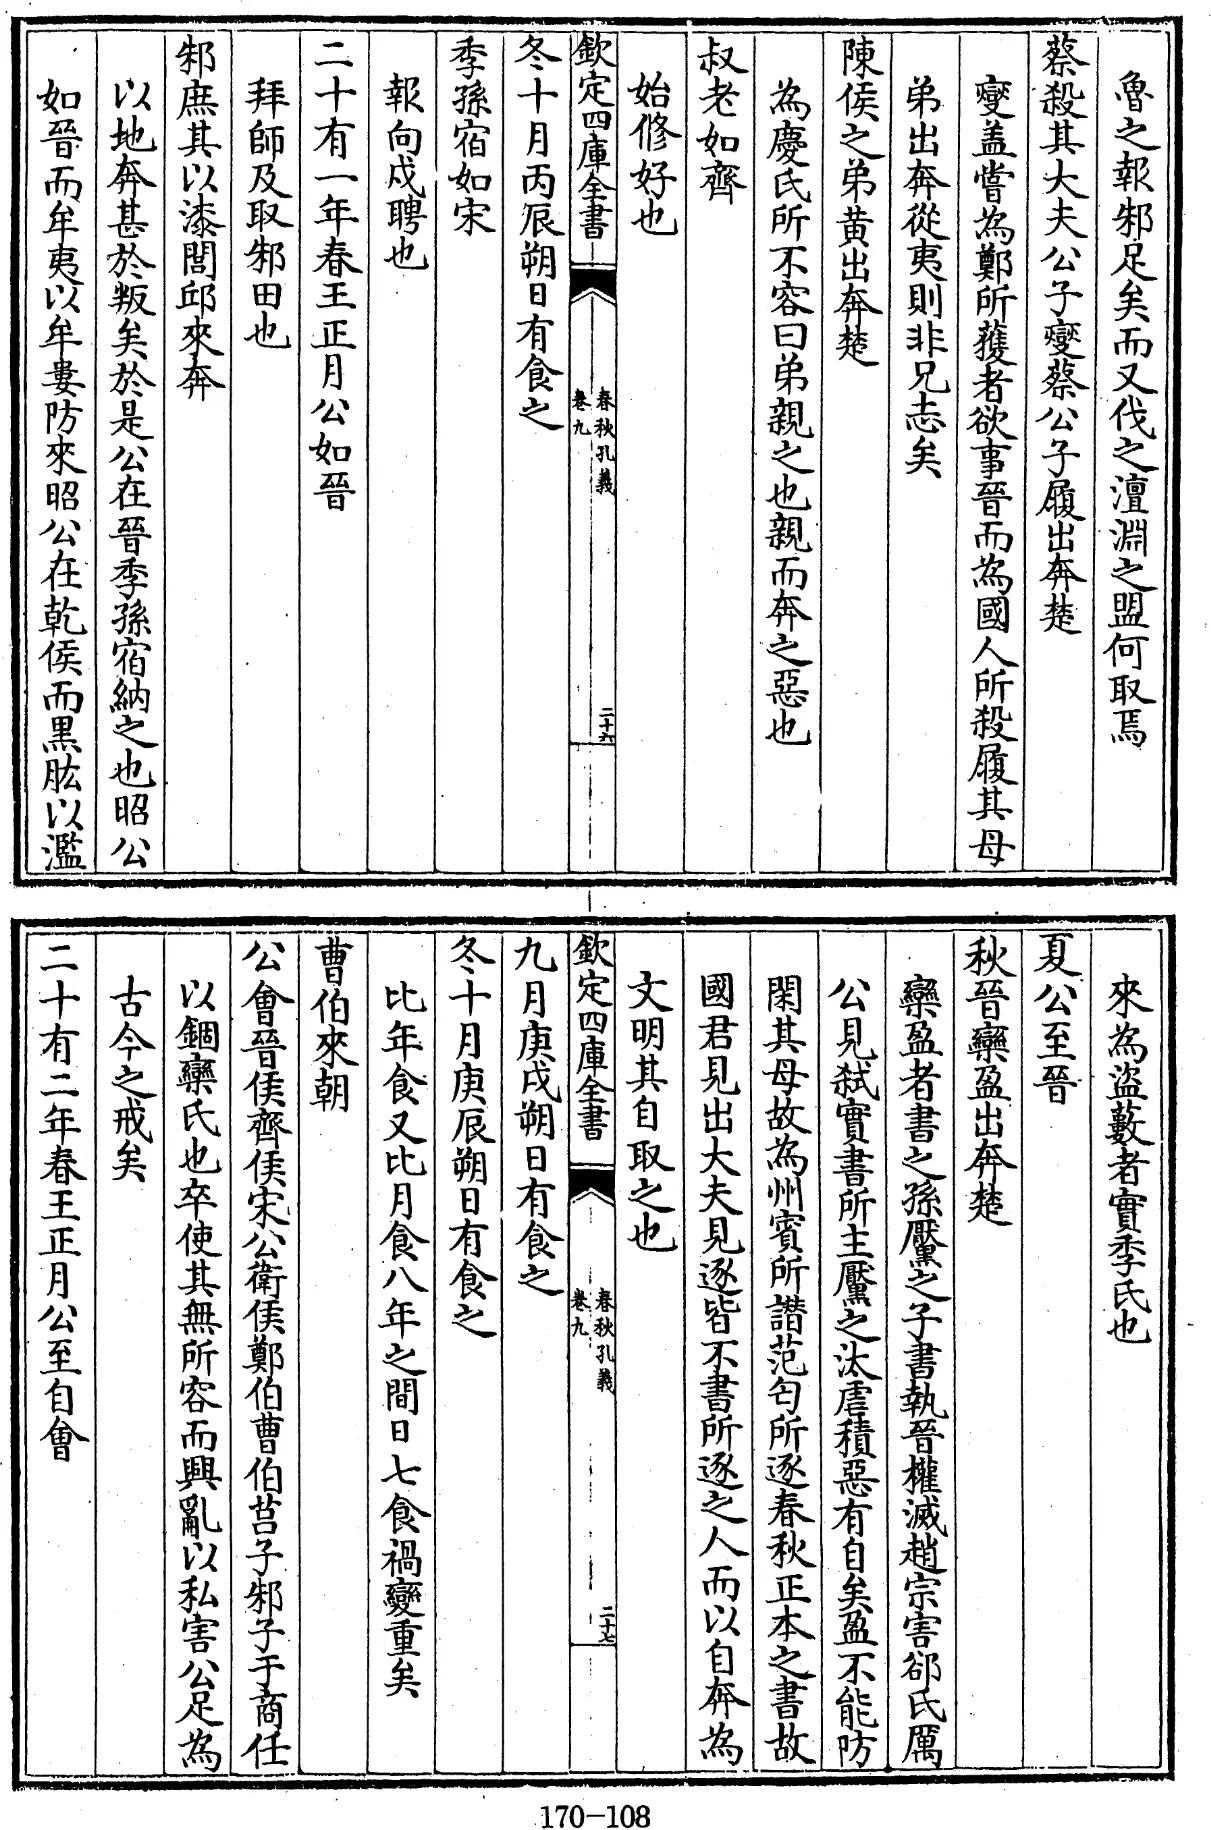 魯之報邾足矣而又伐之澶淵之盟何取焉
蔡殺其大夫公子燮蔡公子履出奔楚
燮盖嘗為鄭所獲者欲事晉而為國人所殺履其母
弟出奔從夷則非兄志矣
陳侯之弟黄出奔楚
為慶氏所不容曰弟親之也親而奔之惡也
叔老如齊
始修好也
欽定四庫全書
春秋孔義
卷九
二十六
冬十月丙辰朔日有食之
季孫宿如宋
報向戌聘也
二十有一年春王正月公如晉
拜師及取邾田也
邾庶其以漆閭邱來奔
以地奔甚於叛矣於是公在晉季孫宿納之也昭公
如晉而牟夷以牟婁防來昭公在乾侯而黒肱以濫
來為盜藪者實季氏也
夏公至晉
秋晉欒盈出奔楚
欒盈者書之孫黶之子書執晉權滅趙宗害郤氏厲
公見弑實書所主黶之汰虐積惡有自矣盈不能防
閑其母故為州賓所譖范匄所逐春秋正本之書故
國君見出大夫見逐皆不書所逐之人而以自奔為
文明其自取之也
欽定四庫全書
春秋孔義
卷九
二十七
九月庚戌朔日有食之
冬十月庚辰朔日有食之
比年食又比月食八年之間日七食禍變重矣
曹伯來朝
公會晉侯齊侯宋公衛侯鄭伯曹伯莒子邾子于商任
以錮欒氏也卒使其無所容而興亂以私害公足為
古今之戒矣
二十有二年春王正月公至自會
170-108